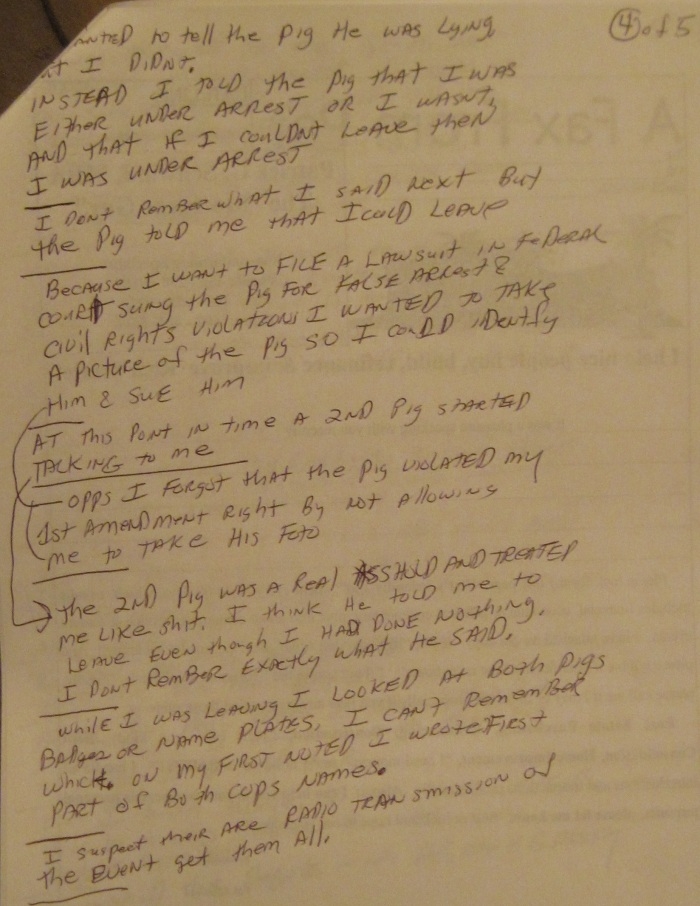 ④ of 5
ANTED to tell the Pig He was Lying
I DIDNT.
INSTEAD I TOLD the PIG that I WAS
EITHER UNDER ARREST OR I WASNT,
AND that IF I COULDNT LEAVE then
I WAS UNDER ARREST
I DONT REMBER WHAT I SAID NEXT BUT
the PIG told me that I COULD LEAVE
BECAUSE I WANT TO FILE A LAWSUIT IN FEDERAL
COURT SUING the PIG FOR FALSE ARREST &
CIVIL RIGHTS VIOLATIONS I WANTED TO TAKE
A PICTURE of the PIG SO I COULD IDENTIFY
HIM & SUE HIM
AT this PONT IN time A 2ND Pig STARTED
TALKING to me
OPPS I FORGOT that the PIG VIOLATED my
1st AMENDMENT Right BY NOT Allowing
me to TAKE HIS FOTO
the 2ND PIG WAS A REAL ASSHOLD AND TREATED
ME LIKE SHIT. I THINK HE TOLD me to
LEAVE EVEN though I HAD DONE NOTHING.
I DONT REMBER EXACTLY WHAT HE SAID.
While I WAS LEAVING I LOOKED AT BOTH PIGS
BADGES OR NAME PLATES, I CAN'T REMEMBER
WHICH. ON my FIRST NOTED I WROTE FIRST
PART OF BOTH COPS NAMES.
I suspect their ARE RADIO TRANSMISSION of
the EVENT get them All.